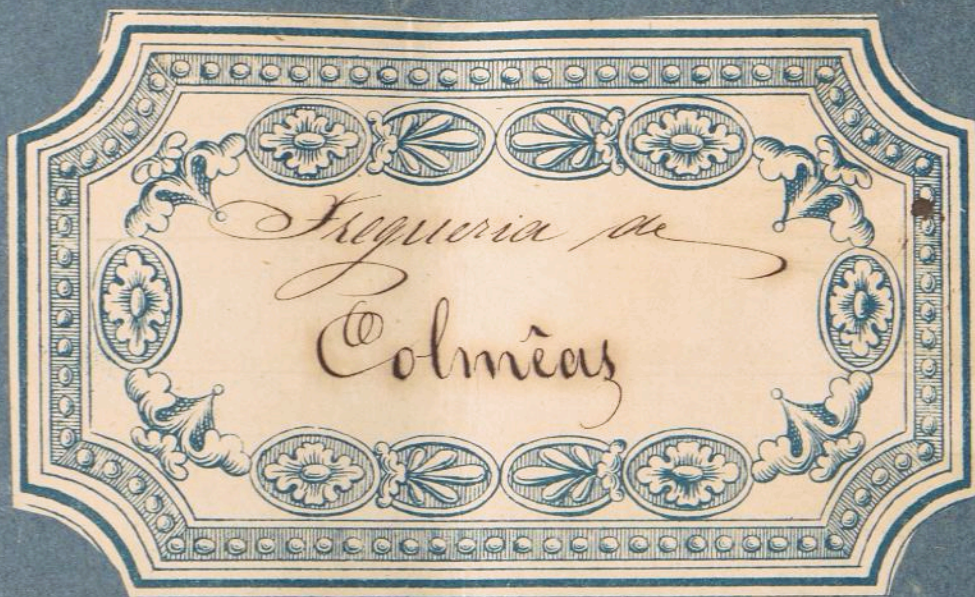 Fregueria de
Colmêas